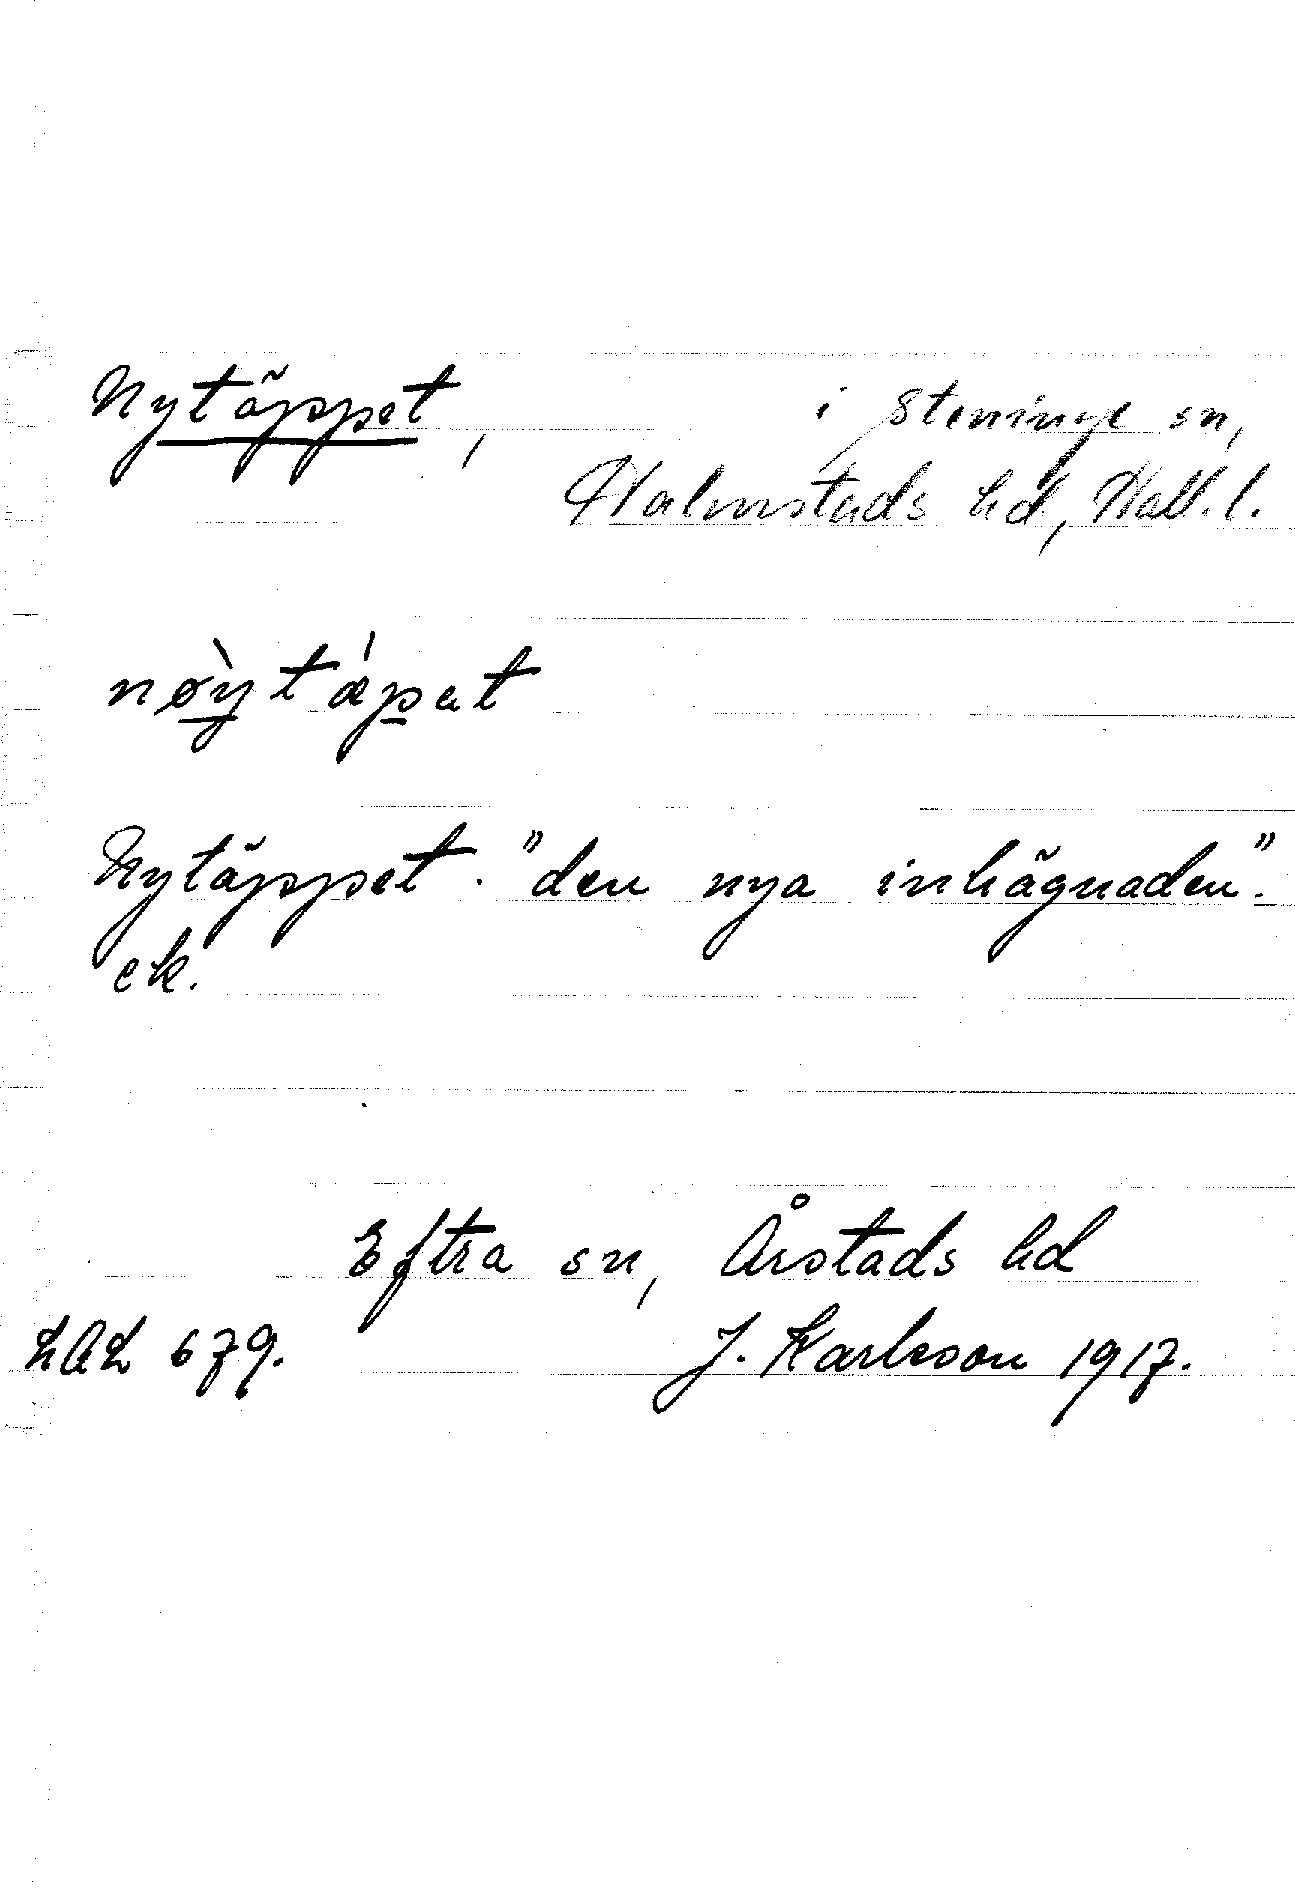 Nytäppet, i Steninge sn,
Halmstads hd, Hall. l.
nø̀ytǽpat
Nytäppet. "den nya inhägnaden".
ek.
Eftra sn, Årstads hd
LAL 679. J. Karlsson 1917.